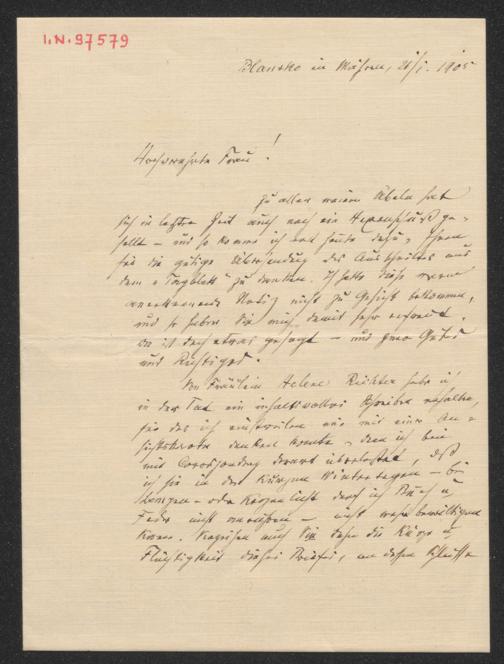 I.N. 97579
Blansko in Mähren, 26/1. 1905
Hochverehrte Frau!
Zu allen meinen Übeln hat
sich in letzter Zeit auch noch ein Hexenschuß ge-
sellt – und so komme ich erst heute dazu, Ihnen
für die gütige Übersendung des Ausschnittes aus
dem „Tagblatt“ zu danken. Ich hatte diese warm
anerkennende Notiz nicht zu Gesicht bekommen,
und so haben Sie mich damit sehr erfreut.
Es ist doch etwas gesagt – und zwar Gutes
und Richtiges.
Von Fräulein Helene Richter habe ich
in der Tat ein inhaltvolles Schreiben erhalten,
für das ich einstweilen nur mit einer An-
sichtskarte danken konnte, denn ich bin
mit Correspondenz derart überlastet, daß
ich sie in den kurzen Wintertagen – bei
Lampen- oder Kerzenlicht darf ich Buch u
Feder nicht anrühren – nicht mehr bewältigen
kann. Verzeihen auch Sie daher die Kürze u
Flüchtigkeit dieses Briefes, an dessen Schlusse